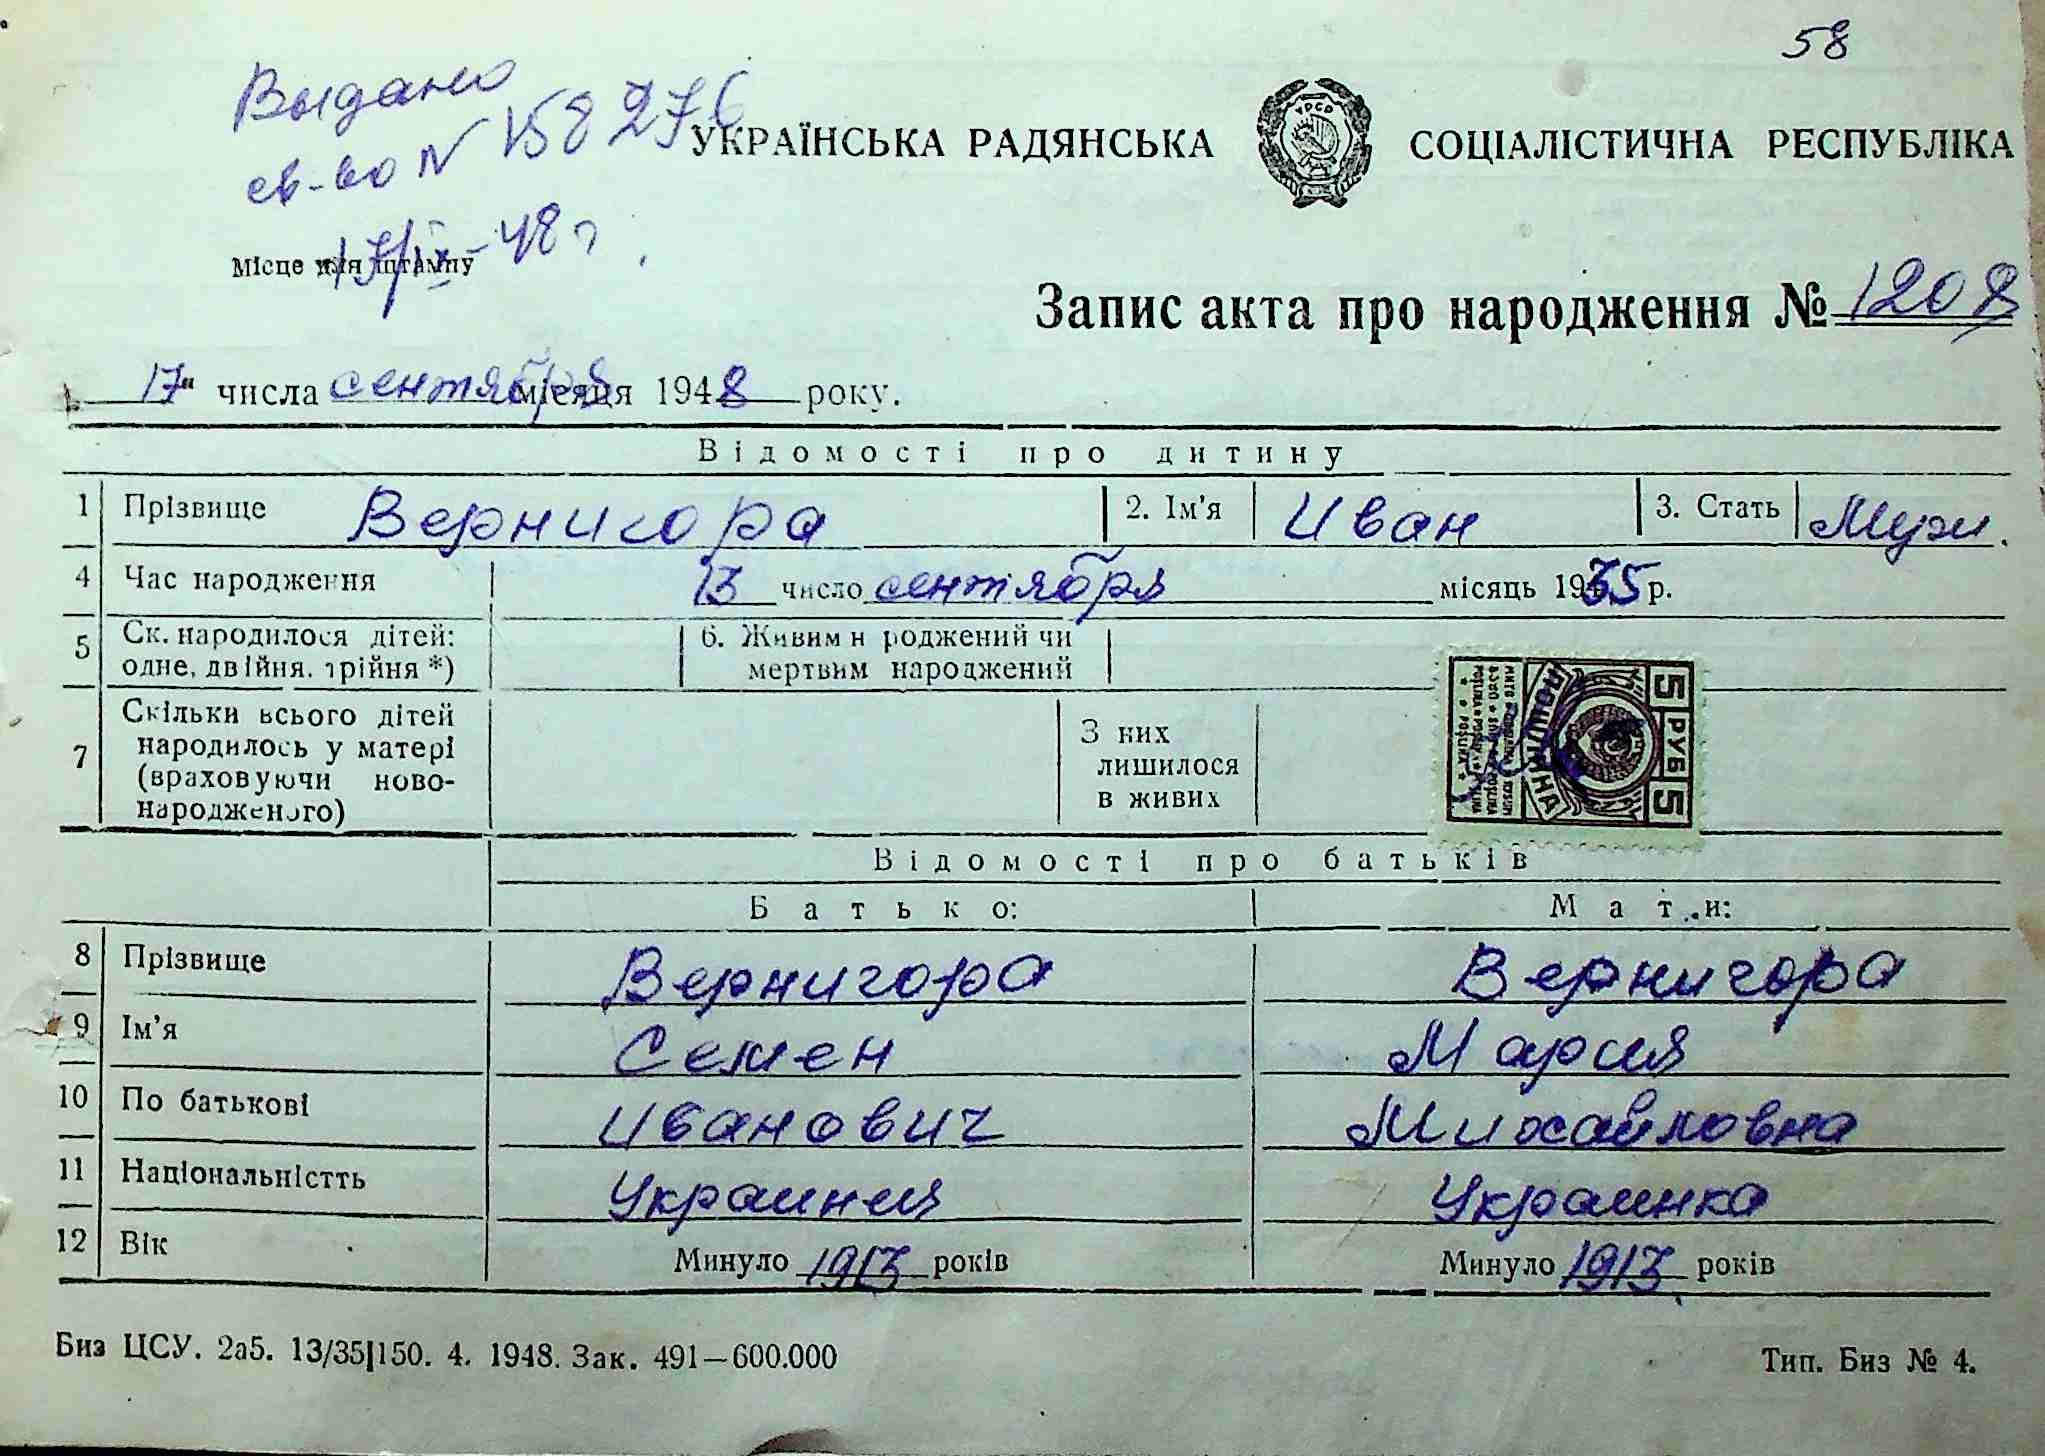 58
Выдано
св-во N 158276
17/IX-48 г.
УКРАЇНСЬКА РАДЯНСЬКА СОЦІАЛІСТИЧНА РЕСПУБЛІКА
УРСР
Місце для штампу
Запис акта про народження № 1208
17" числа сентября місяця 1948 року.
Відомості про дитину
1 Прізвище Вернигора 2. Ім'я Иван 3. Стать Муж.
4 Час народження 13 число сентября місяць 1935 р.
5 Ск. народилося дітей: одне, двійня, трійня *) 6. Живим н роджений чи мертвим народжений
7 Скільки всього дітей народилось у матері (враховуючи ново-народженого) З них лишилося в живих
5 РУБ 5
ПОШЛИНА
Відомості про батьків
Батько: Мати:
8 Прізвище Вернигора Вернигора
9 Ім'я Семен Мария
10 По батькові Иванович Михайловна
11 Національністть Украинец Украинка
12 Вік Минуло 1913 років Минуло 1913 років
Биз ЦСУ. 2а5. 13/35|150. 4. 1948. Зак. 491—600.000 Тип. Биз № 4.